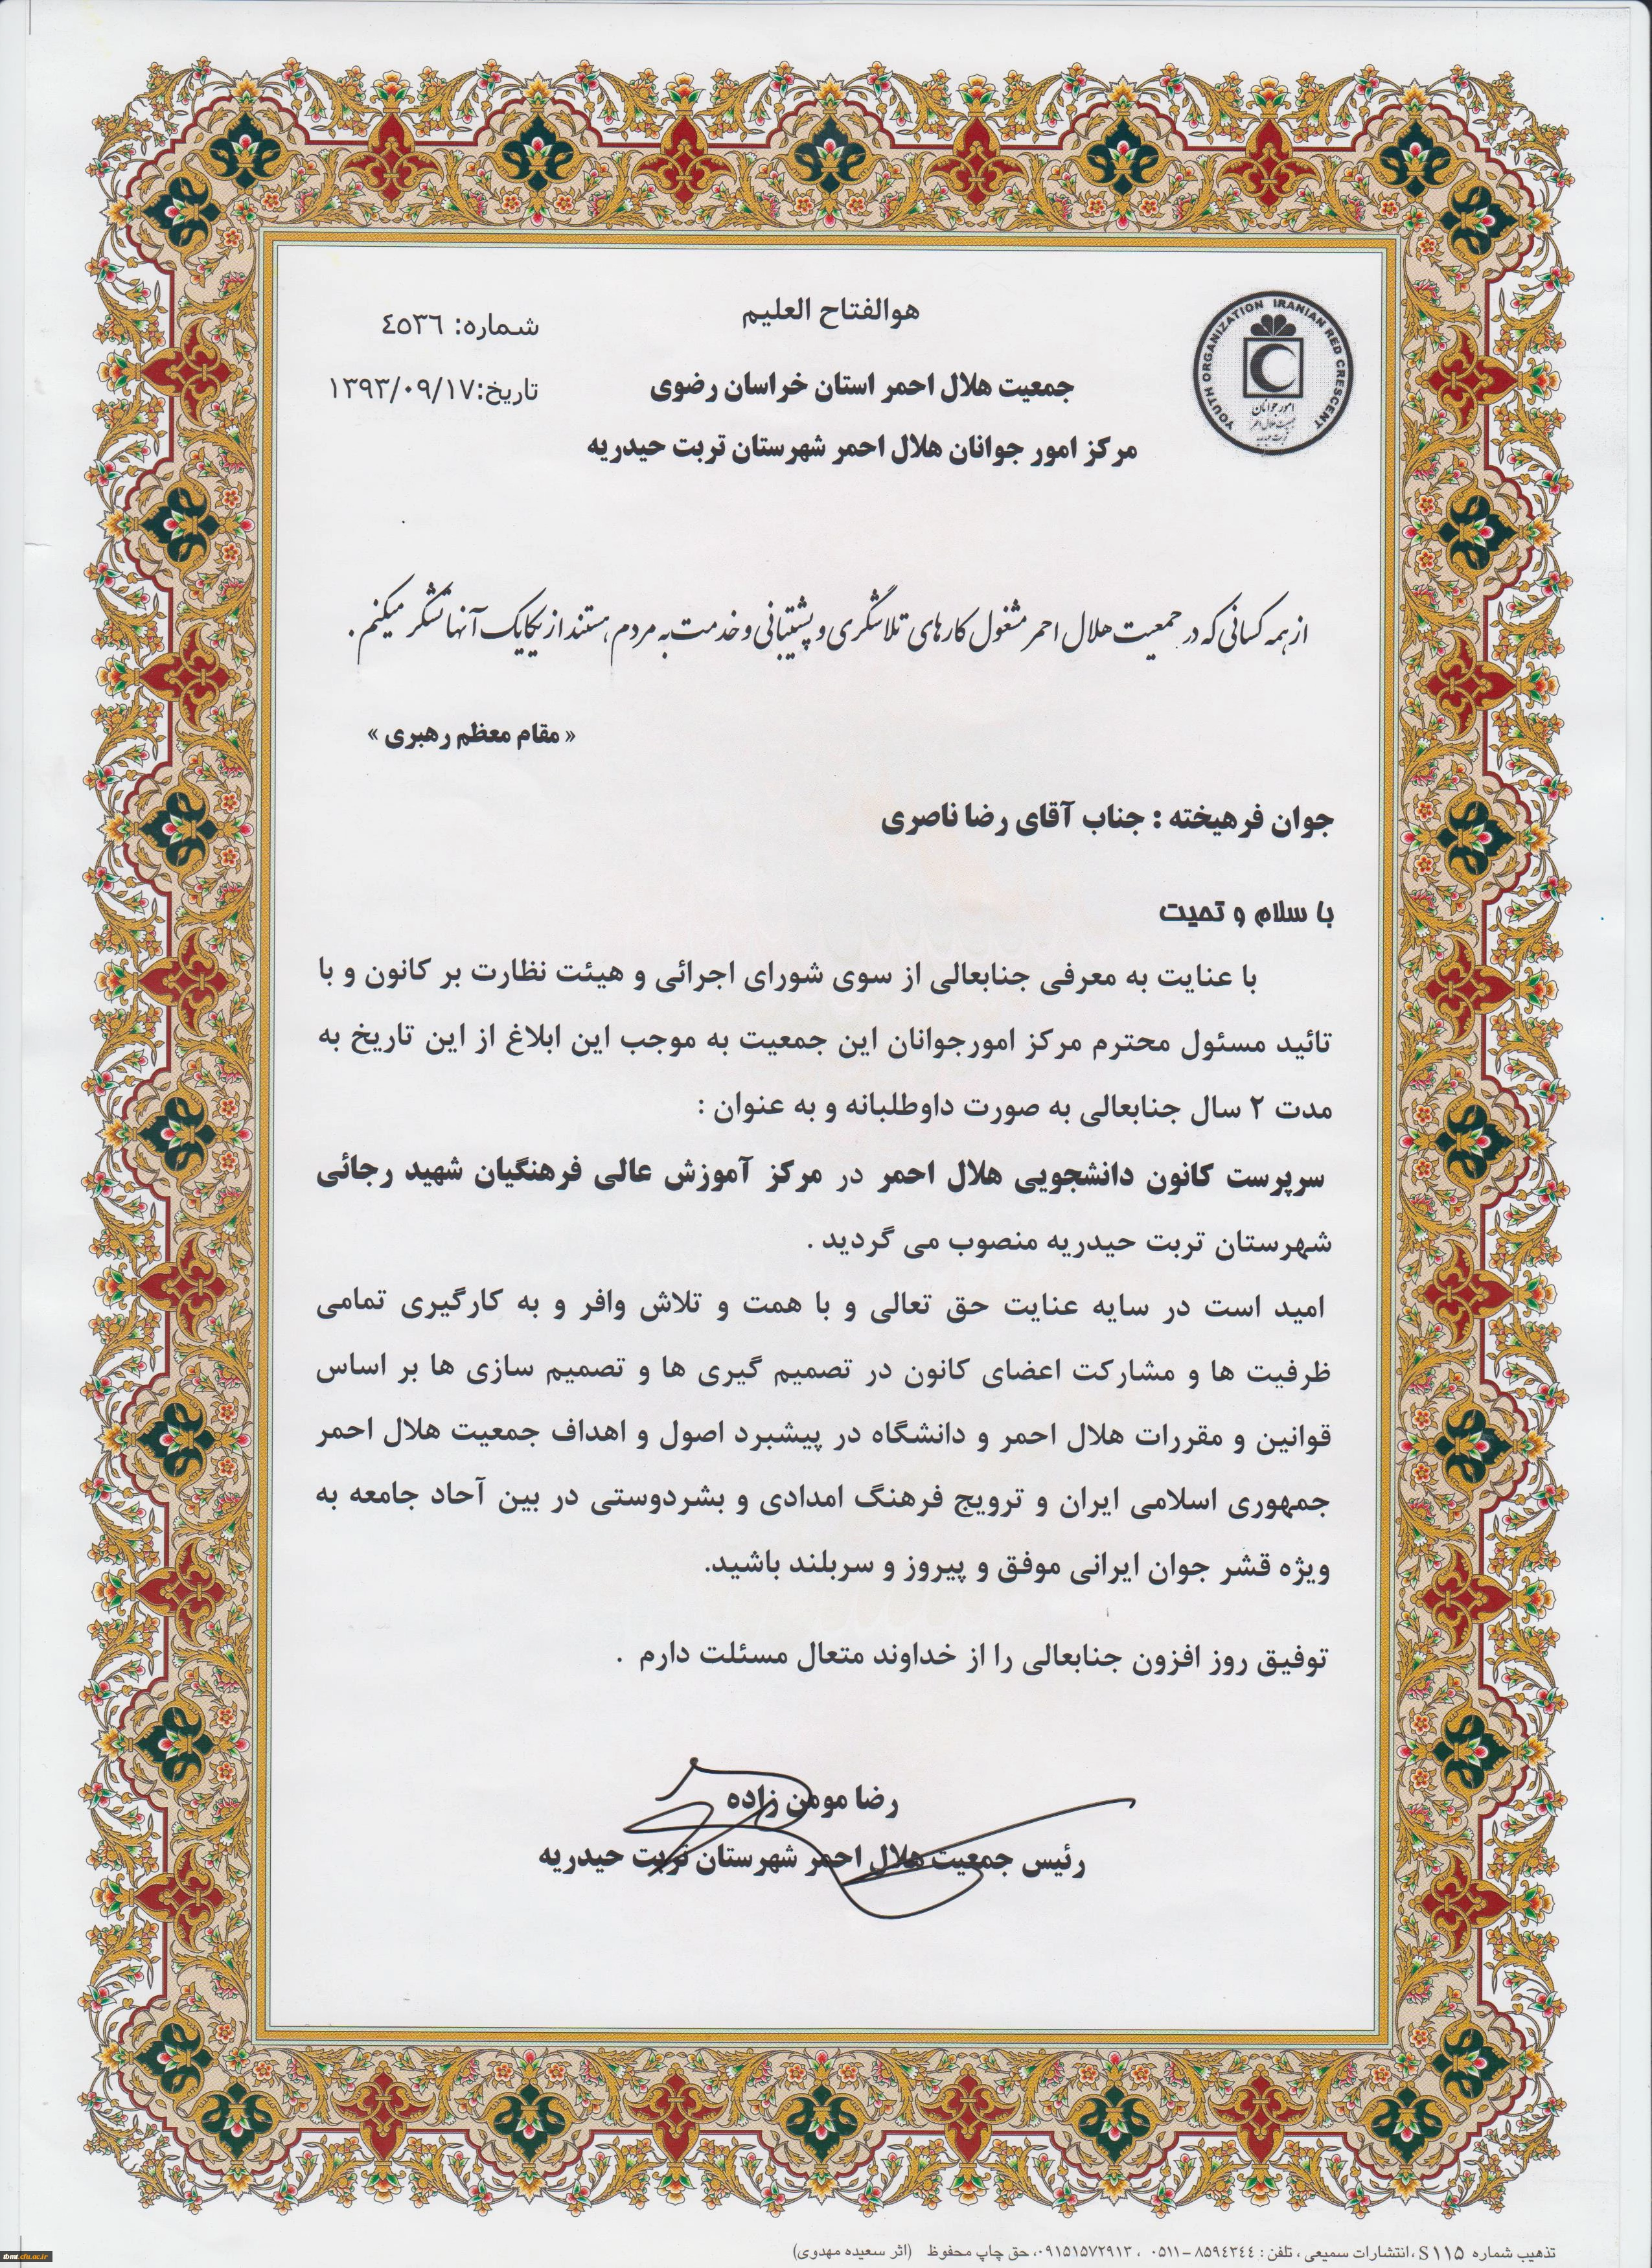 هوالفتاح العلیم
شماره: ٤٥٣٦
جمعیت هلال احمر استان خراسان رضوی
تاریخ:۱۳۹۳/۰۹/۱۷
مرکز امور جوانان هلال احمر شهرستان تربت حیدریه
YOUTH ORGANIZATION IRANIAN RED CRESCENT
امور جوانان
جمعیت هلال احمر
تربت حیدریه
از همه کسانی که در جمعیت هلال احمر مشغول کارهای تلاشگری و پشتیبانی و خدمت به مردم هستند از یکایک آنها تشکر میکنم .
« مقام معظم رهبری »
جوان فرهیخته : جناب آقای رضا ناصری
با سلام و تحیت
با عنایت به معرفی جنابعالی از سوی شورای اجرائی و هیئت نظارت بر کانون و با
تائید مسئول محترم مرکز امورجوانان این جمعیت به موجب این ابلاغ از این تاریخ به
مدت ۲ سال جنابعالی به صورت داوطلبانه و به عنوان :
سرپرست کانون دانشجویی هلال احمر در مرکز آموزش عالی فرهنگیان شهید رجائی
شهرستان تربت حیدریه منصوب می گردید .
امید است در سایه عنایت حق تعالی و با همت و تلاش وافر و به کارگیری تمامی
ظرفیت ها و مشارکت اعضای کانون در تصمیم گیری ها و تصمیم سازی ها بر اساس
قوانین و مقررات هلال احمر و دانشگاه در پیشبرد اصول و اهداف جمعیت هلال احمر
جمهوری اسلامی ایران و ترویج فرهنگ امدادی و بشردوستی در بین آحاد جامعه به
ویژه قشر جوان ایرانی موفق و پیروز و سربلند باشید.
توفیق روز افزون جنابعالی را از خداوند متعال مسئلت دارم .
رضا مومن زاده
رئیس جمعیت هلال احمر شهرستان تربت حیدریه
تذهیب شماره S۱۱۵ ،انتشارات سمیعی ، تلفن : ۸۵۹٤۳٤٤-۰۵۱۱ ، ۰۹۱۵۱۵۷۲۹۱۳، حق چاپ محفوظ (اثر سعیده مهدوی)
tbmt.cfu.ac.ir